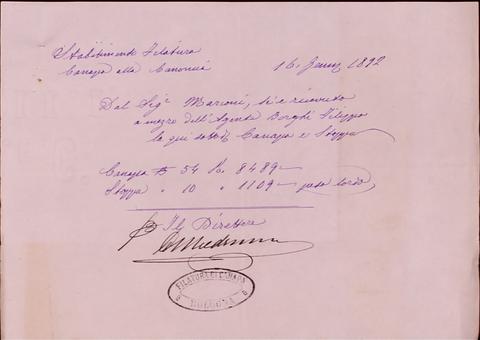 Stabilimento Filatura
Canapa alla Canonica
16. Genn. 1892
Dal Sigr Marconi, si è ricevuto
a mezzo dell'Agente Borghi Filippo
la qui sotto Canapa e Stoppa
Canapa B 54 K. 8489
Stoppa " 10 " 1109 peso lordo
Il Direttore
FILATURA DI CANAPA
BOLOGNA